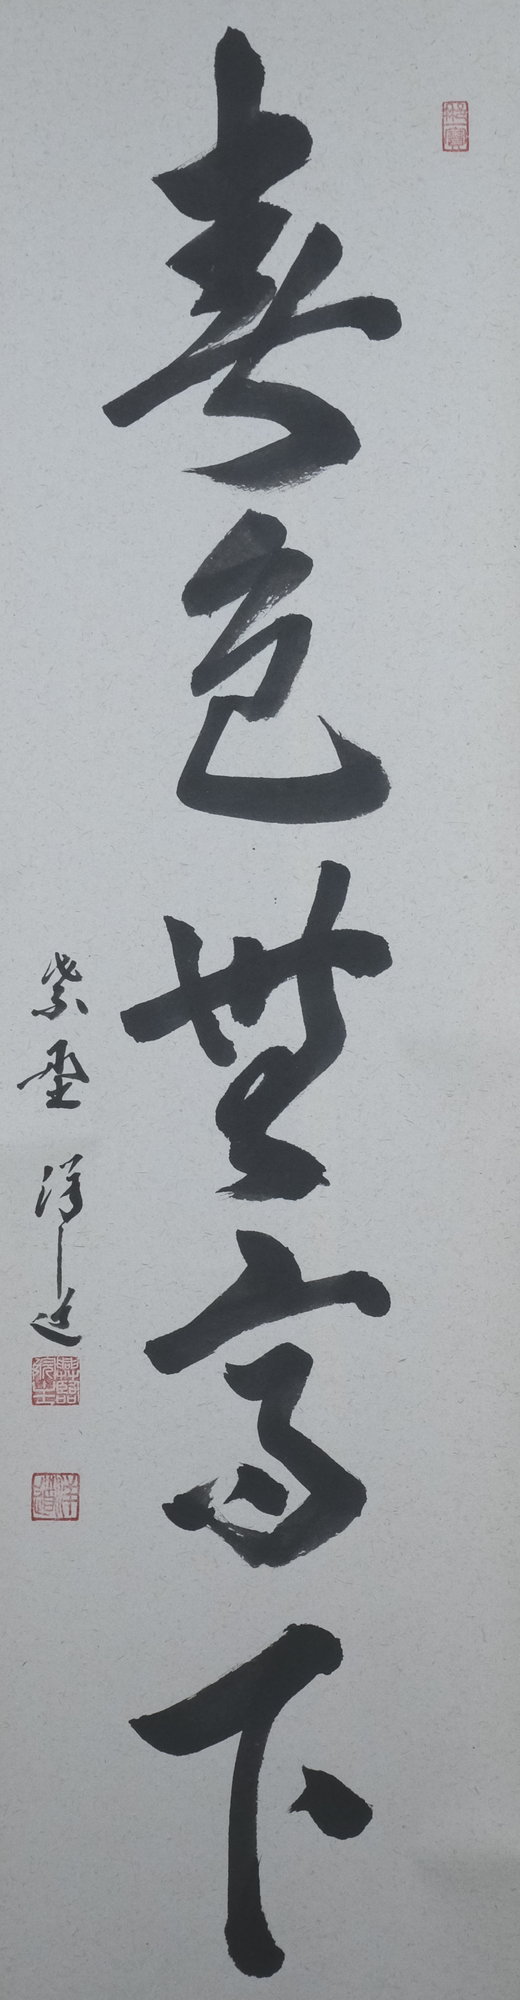 春色無高下
紫野 洋道